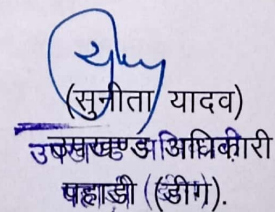 (सुनीता यादव)
उपखण्ड अधिकारी
पहाडी (डीग).